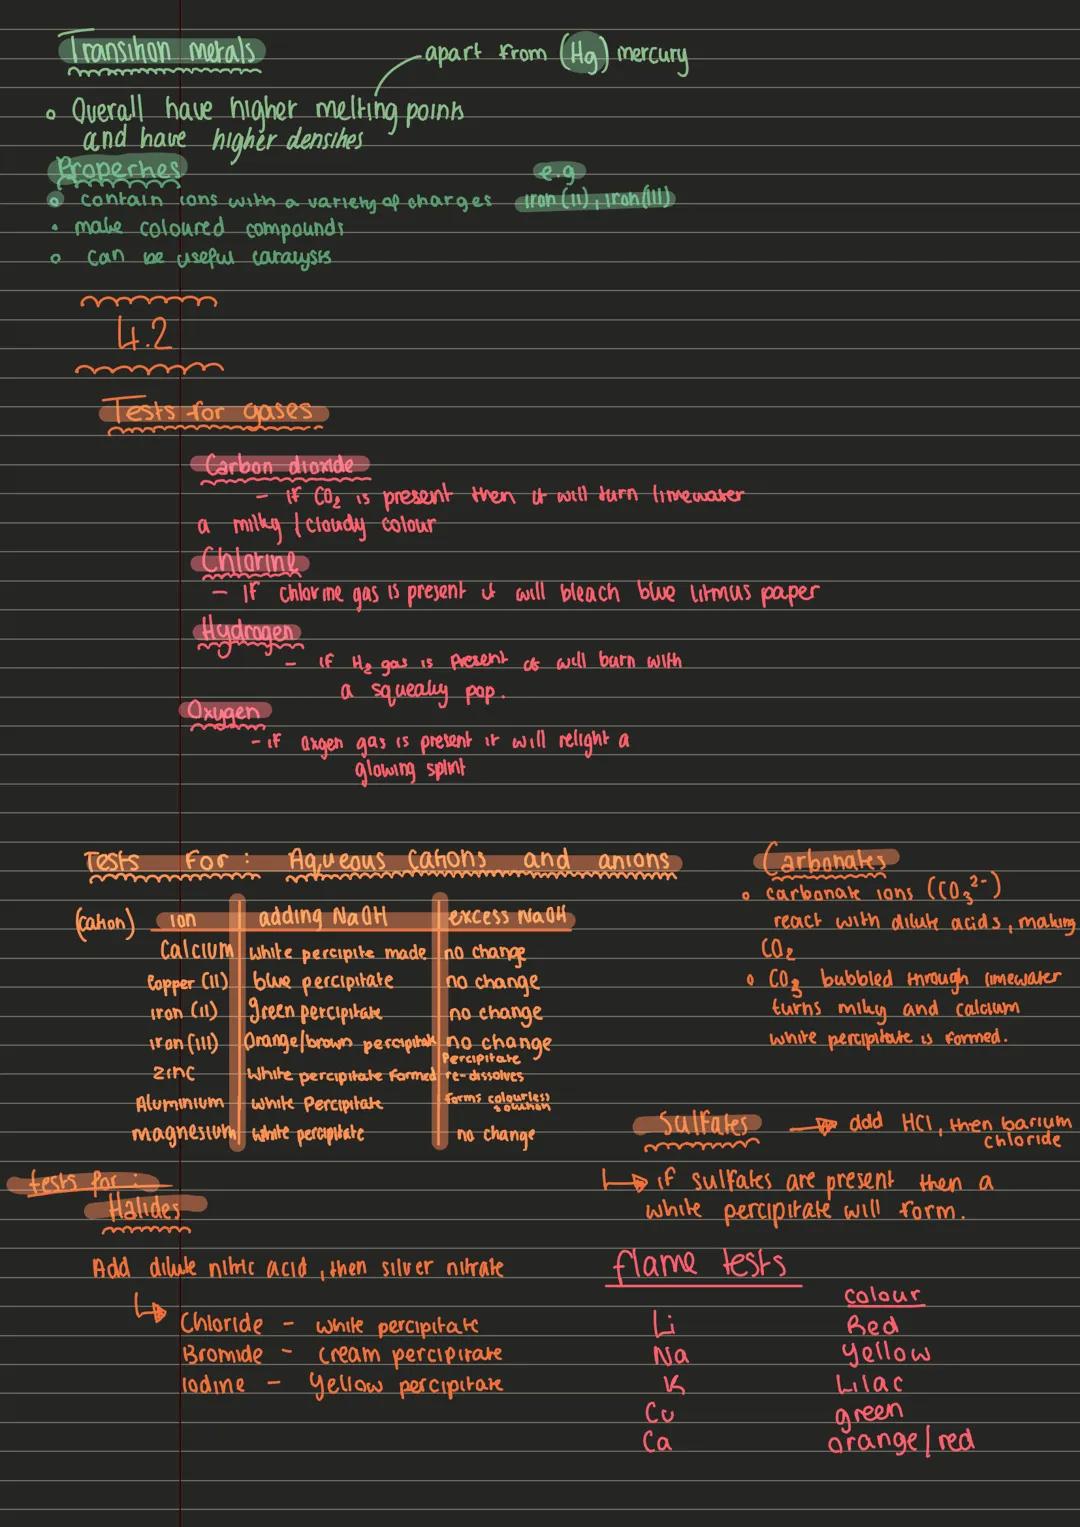 Transition metals
apart from (Hg) mercury
Overall have higher melting points
and have higher densities
Properties
e.g
contain ions with a variety of charges iron (II), iron (III)
make coloured compounds
can be useful catalysts
4.2
Tests for gases
Carbon dioxide
- if CO₂ is present then it will turn limewater
a milky / cloudy colour
Chlorine
- If chlorine gas is present it will bleach blue litmus paper
Hydrogen
- if H₂ gas is present it will burn with
a squeaky pop.
Oxygen
- if oxgen gas is present it will relight a
glowing splint
Tests For : Aqueous cations and anions
(cation) ion adding NaOH excess NaOH
Calcium white percipite made no change
Copper (II) blue percipitate no change
iron (II) green percipitate no change
iron (III) Orange/brown percipitate no change
zinc white percipitate formed percipitate
re-dissolves
Aluminium white percipitate forms colourless
solution
magnesium white percipitate no change
Carbonates
carbonate ions (CO₃²⁻)
react with dilute acids, making
CO₂
CO₂ bubbled through limewater
turns milky and calcium
white percipitate is formed.
Sulfates → add HCl, then barium
chloride
if sulfates are present then a
white percipitate will form.
tests for :
Halides
Add dilute nitric acid, then silver nitrate
Chloride - white percipitate
Bromide - cream percipitate
Iodine - Yellow percipitate
flame tests
colour
Li Red
Na Yellow
K Lilac
Cu green
Ca orange/red